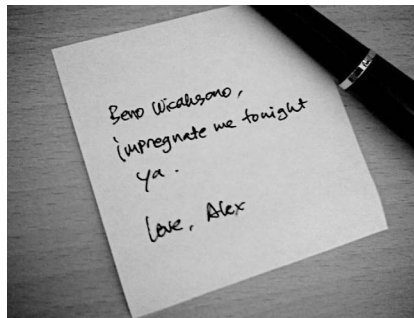 Beno Wicaksono,
impregnate me tonight
ya.
Love, Alex